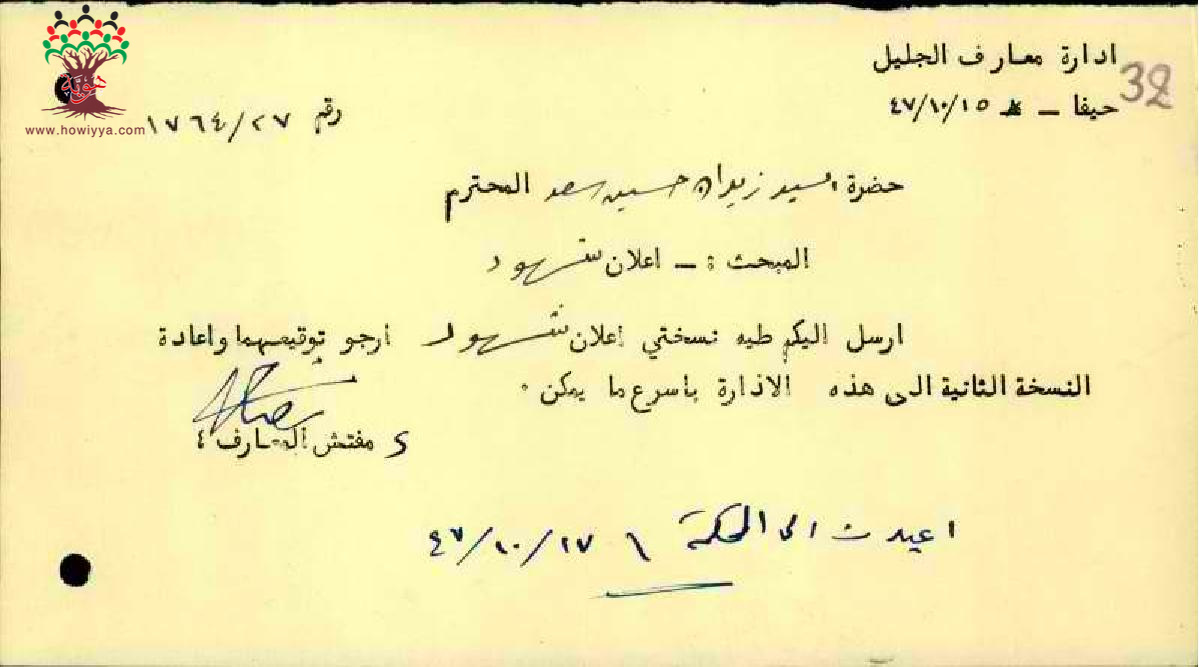 ادارة معارف الجليل
32
حيفا – ٤٧/١٠/١٥
رقم ١٧٦٤/٢٧
هوية
www.howiyya.com
حضرة السيد زيدان حسين سعد المحترم
المبحث : – اعلان شهود
ارسل اليكم طيه نسختي اعلان شهود ارجو توقيعهما واعادة
النسخة الثانية الى هذه الاذارة باسرع ما يمكن .
مفتش المعارف ٤
اعيدت الى المحكمة ٤٧/١٠/٢٧